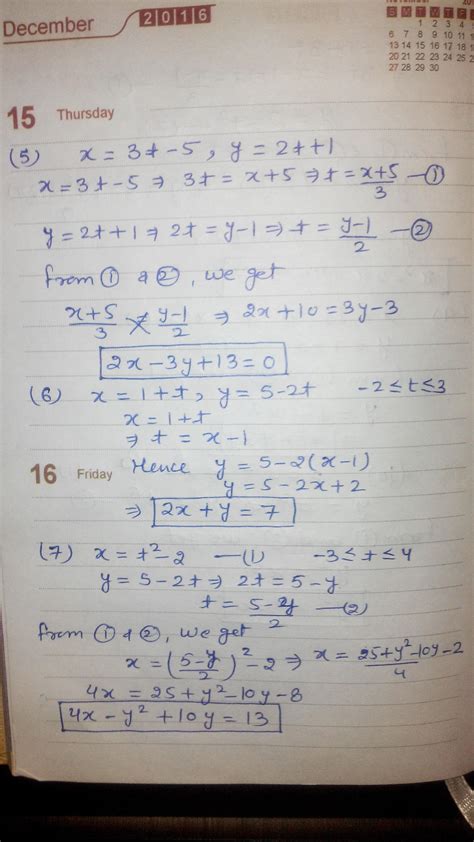 December 2016
November
S M T W T F S
1 2 3 4
6 7 8 9 10 11
13 14 15 16 17 18
20 21 22 23 24 25
27 28 29 30
15 Thursday
(5) x = 3t - 5, y = 2t + 1
x = 3t - 5 ⇒ 3t = x + 5 ⇒ t = (x+5)/3 — ①
y = 2t + 1 ⇒ 2t = y - 1 ⇒ t = (y-1)/2 — ②
from ① & ②, we get
(x+5)/3 = (y-1)/2 ⇒ 2x + 10 = 3y - 3
2x - 3y + 13 = 0
(6) x = 1 + t, y = 5 - 2t -2 ≤ t ≤ 3
x = 1 + t
⇒ t = x - 1
16 Friday Hence y = 5 - 2(x - 1)
y = 5 - 2x + 2
⇒ 2x + y = 7
(7) x = t² - 2 — (1) -3 ≤ t ≤ 4
y = 5 - 2t ⇒ 2t = 5 - y
t = (5-y)/2 — (2)
from ① & ②, we get
x = ((5-y)/2)² - 2 ⇒ x = (25+y²-10y)/4 - 2
4x = 25 + y² - 10y - 8
4x - y² + 10y = 13